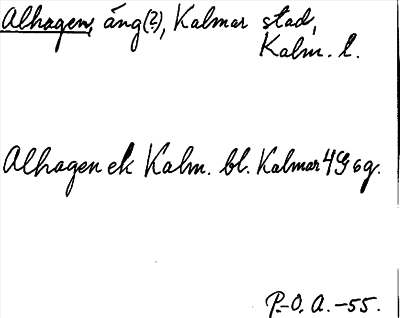 Alhagen, äng(?), Kalmar stad,
Kalm. l.
Alhagen ek Kalm. bl. Kalmar 4G6g.
P.-O. A. -55.